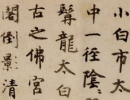 小白市太
中一徑陰
髯龍太白
古之佛宮
閣倒景清